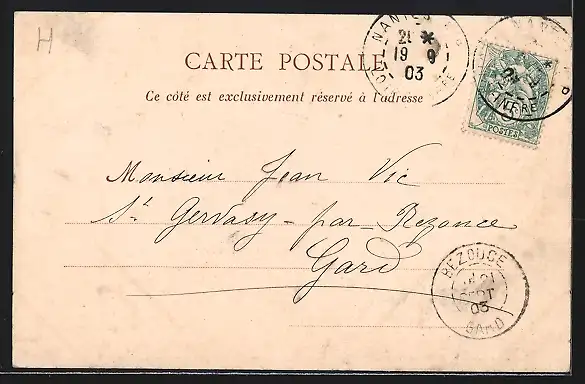 H
NANTES
21 *
19 9
03
NANTES
POSTES
CARTE POSTALE
Ce côté est exclusivement réservé à l'adresse
Monsieur Jean Vic
St Gervasy - par - Bezouce
Gard
BEZOUCE
21
SEPT
03
GARD